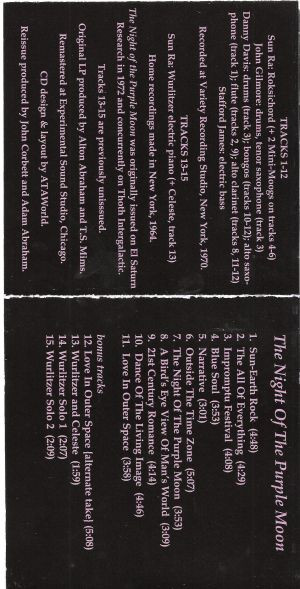 TRACKS 1-12
Sun Ra: Roksichord (+ 2 Mini-Moogs on tracks 4-6)
John Gilmore: drums, tenor saxophone (track 3)
Danny Davis: drums (track 3); bongos (tracks 10-12); alto saxo-
phone (track 1); flute (tracks 2, 9); alto clarinet (tracks 8, 11-12)
Stafford James: electric bass
Recorded at Variety Recording Studio, New York, 1970.
TRACKS 13-15
Sun Ra: Wurlitzer electric piano (+ Celeste, track 13)
Home recordings made in New York, 1964.
The Night of the Purple Moon was originally issued on El Saturn
Research in 1972 and concurrently on Thoth Intergalactic.
Tracks 13-15 are previously unisssued.
Original LP produced by Alton Abraham and T.S. Mims.
Remastered at Experimental Sound Studio, Chicago.
CD design & layout by ATAWorld.
Reissue produced by John Corbett and Adam Abraham.
The Night Of The Purple Moon
1. Sun-Earth Rock (4:48)
2. The All Of Everything (4:29)
3. Impromptu Festival (4:08)
4. Blue Soul (3:53)
5. Narrative (3:01)
6. Outside The Time Zone (5:07)
7. The Night Of The Purple Moon (3:53)
8. A Bird's Eye View Of Man's World (3:09)
9. 21st Century Romance (4:14)
10. Dance Of The Living Image (4:46)
11. Love In Outer Space (3:58)
bonus tracks
12. Love In Outer Space [alternate take] (5:08)
13. Wurlitzer and Celeste (1:59)
14. Wurlitzer Solo 1 (2:07)
15. Wurlitzer Solo 2 (2:09)